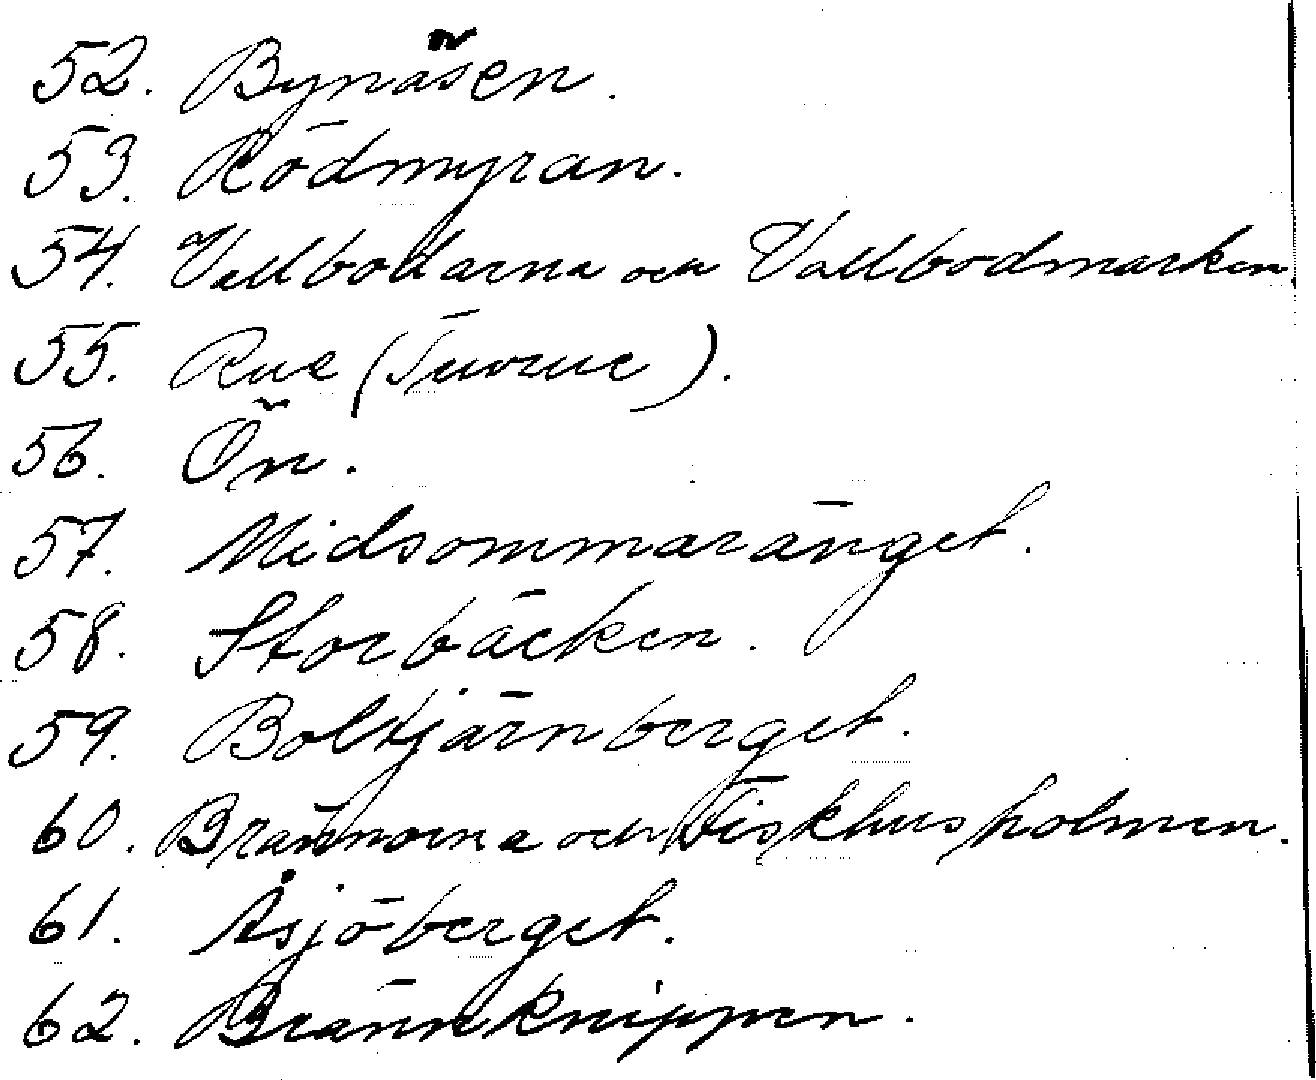 52. Bynäsen.
53. Rödmyran.
54. Vallbodarna och Vallbodmarken.
55. Rue
56. Ön.
57. Midsommaränget.
58. Storbäcken.
59. Boltjärnberget.
60. Brännorna och Fiskhusholmen.
61. Åsjöberget.
62. Brännknippen.